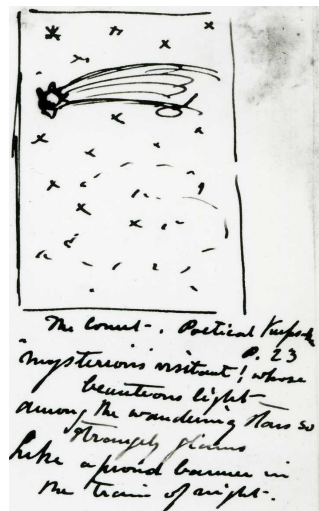 The Comet-. Poetical Keepsake
P. 23
"mysterious visitant! whose
beauteous light-
among the wandering stars so
strangely gleams
Like a proud banner in
the train of night-.